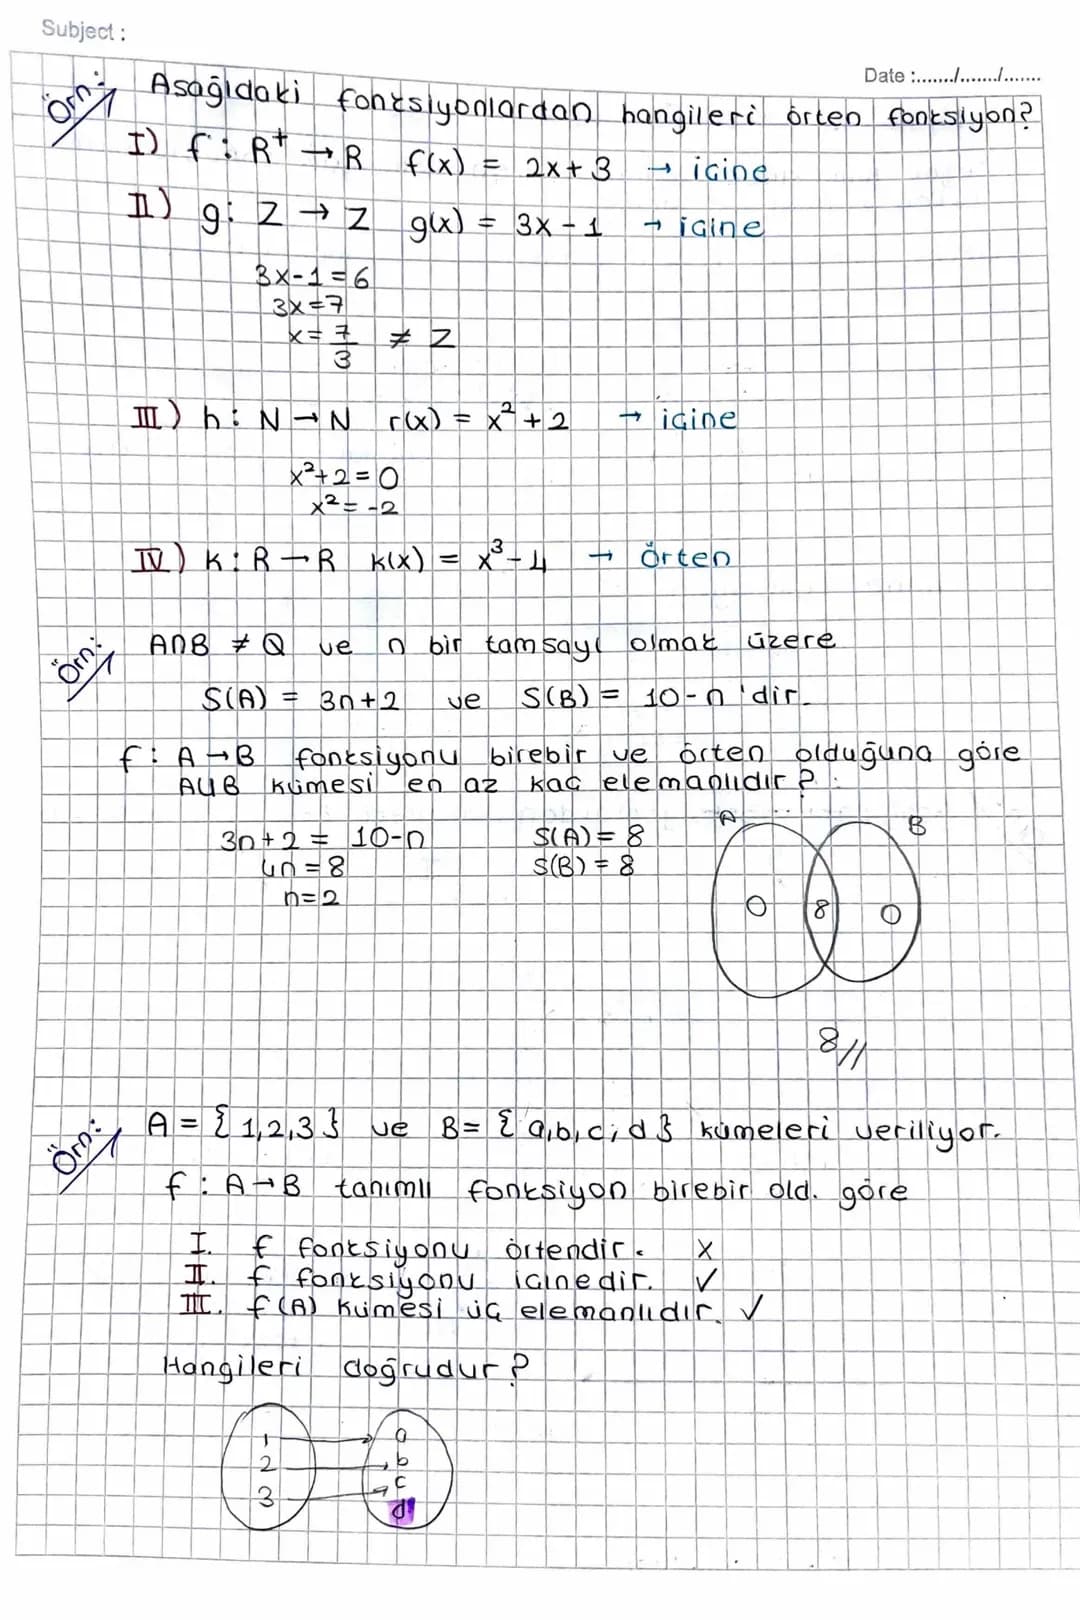 Subject :
Date :......./......./.......
Örn: Asağıdaki fonksiyonlardan hangileri örten fonksiyon?
I) f : R⁺ → R f(x) = 2x+3 → içine
II) g: Z → Z g(x) = 3x-1 → içine
3x-1=6
3x=7
x= 7/3 ≠ Z
III) h : N → N r(x) = x²+2 → içine
x²+2=0
x²=-2
IV) k : R → R k(x) = x³-4 → Örten
Örn: A∩B ≠ Q ve n bir tamsayı olmak üzere
S(A) = 3n+2 ve S(B) = 10-n 'dir.
f : A → B fonksiyonu birebir ve örten olduğuna göre
AUB kümesi en az kaç elemanlıdır ?
3n+2 = 10-n S(A) = 8 A B
4n=8 S(B) = 8
n=2 0 8 0
8//
Örn: A = {1,2,3} ve B= {a,b,c,d} kümeleri veriliyor.
f : A → B tanımlı fonksiyon birebir old. göre
I. f fonksiyonu örtendir. x
II. f fonksiyonu içinedir. ✓
III. f(A) kümesi üç elemanlıdır. ✓
Hangileri doğrudur ?
1 → a
2 → b
3 → c
d